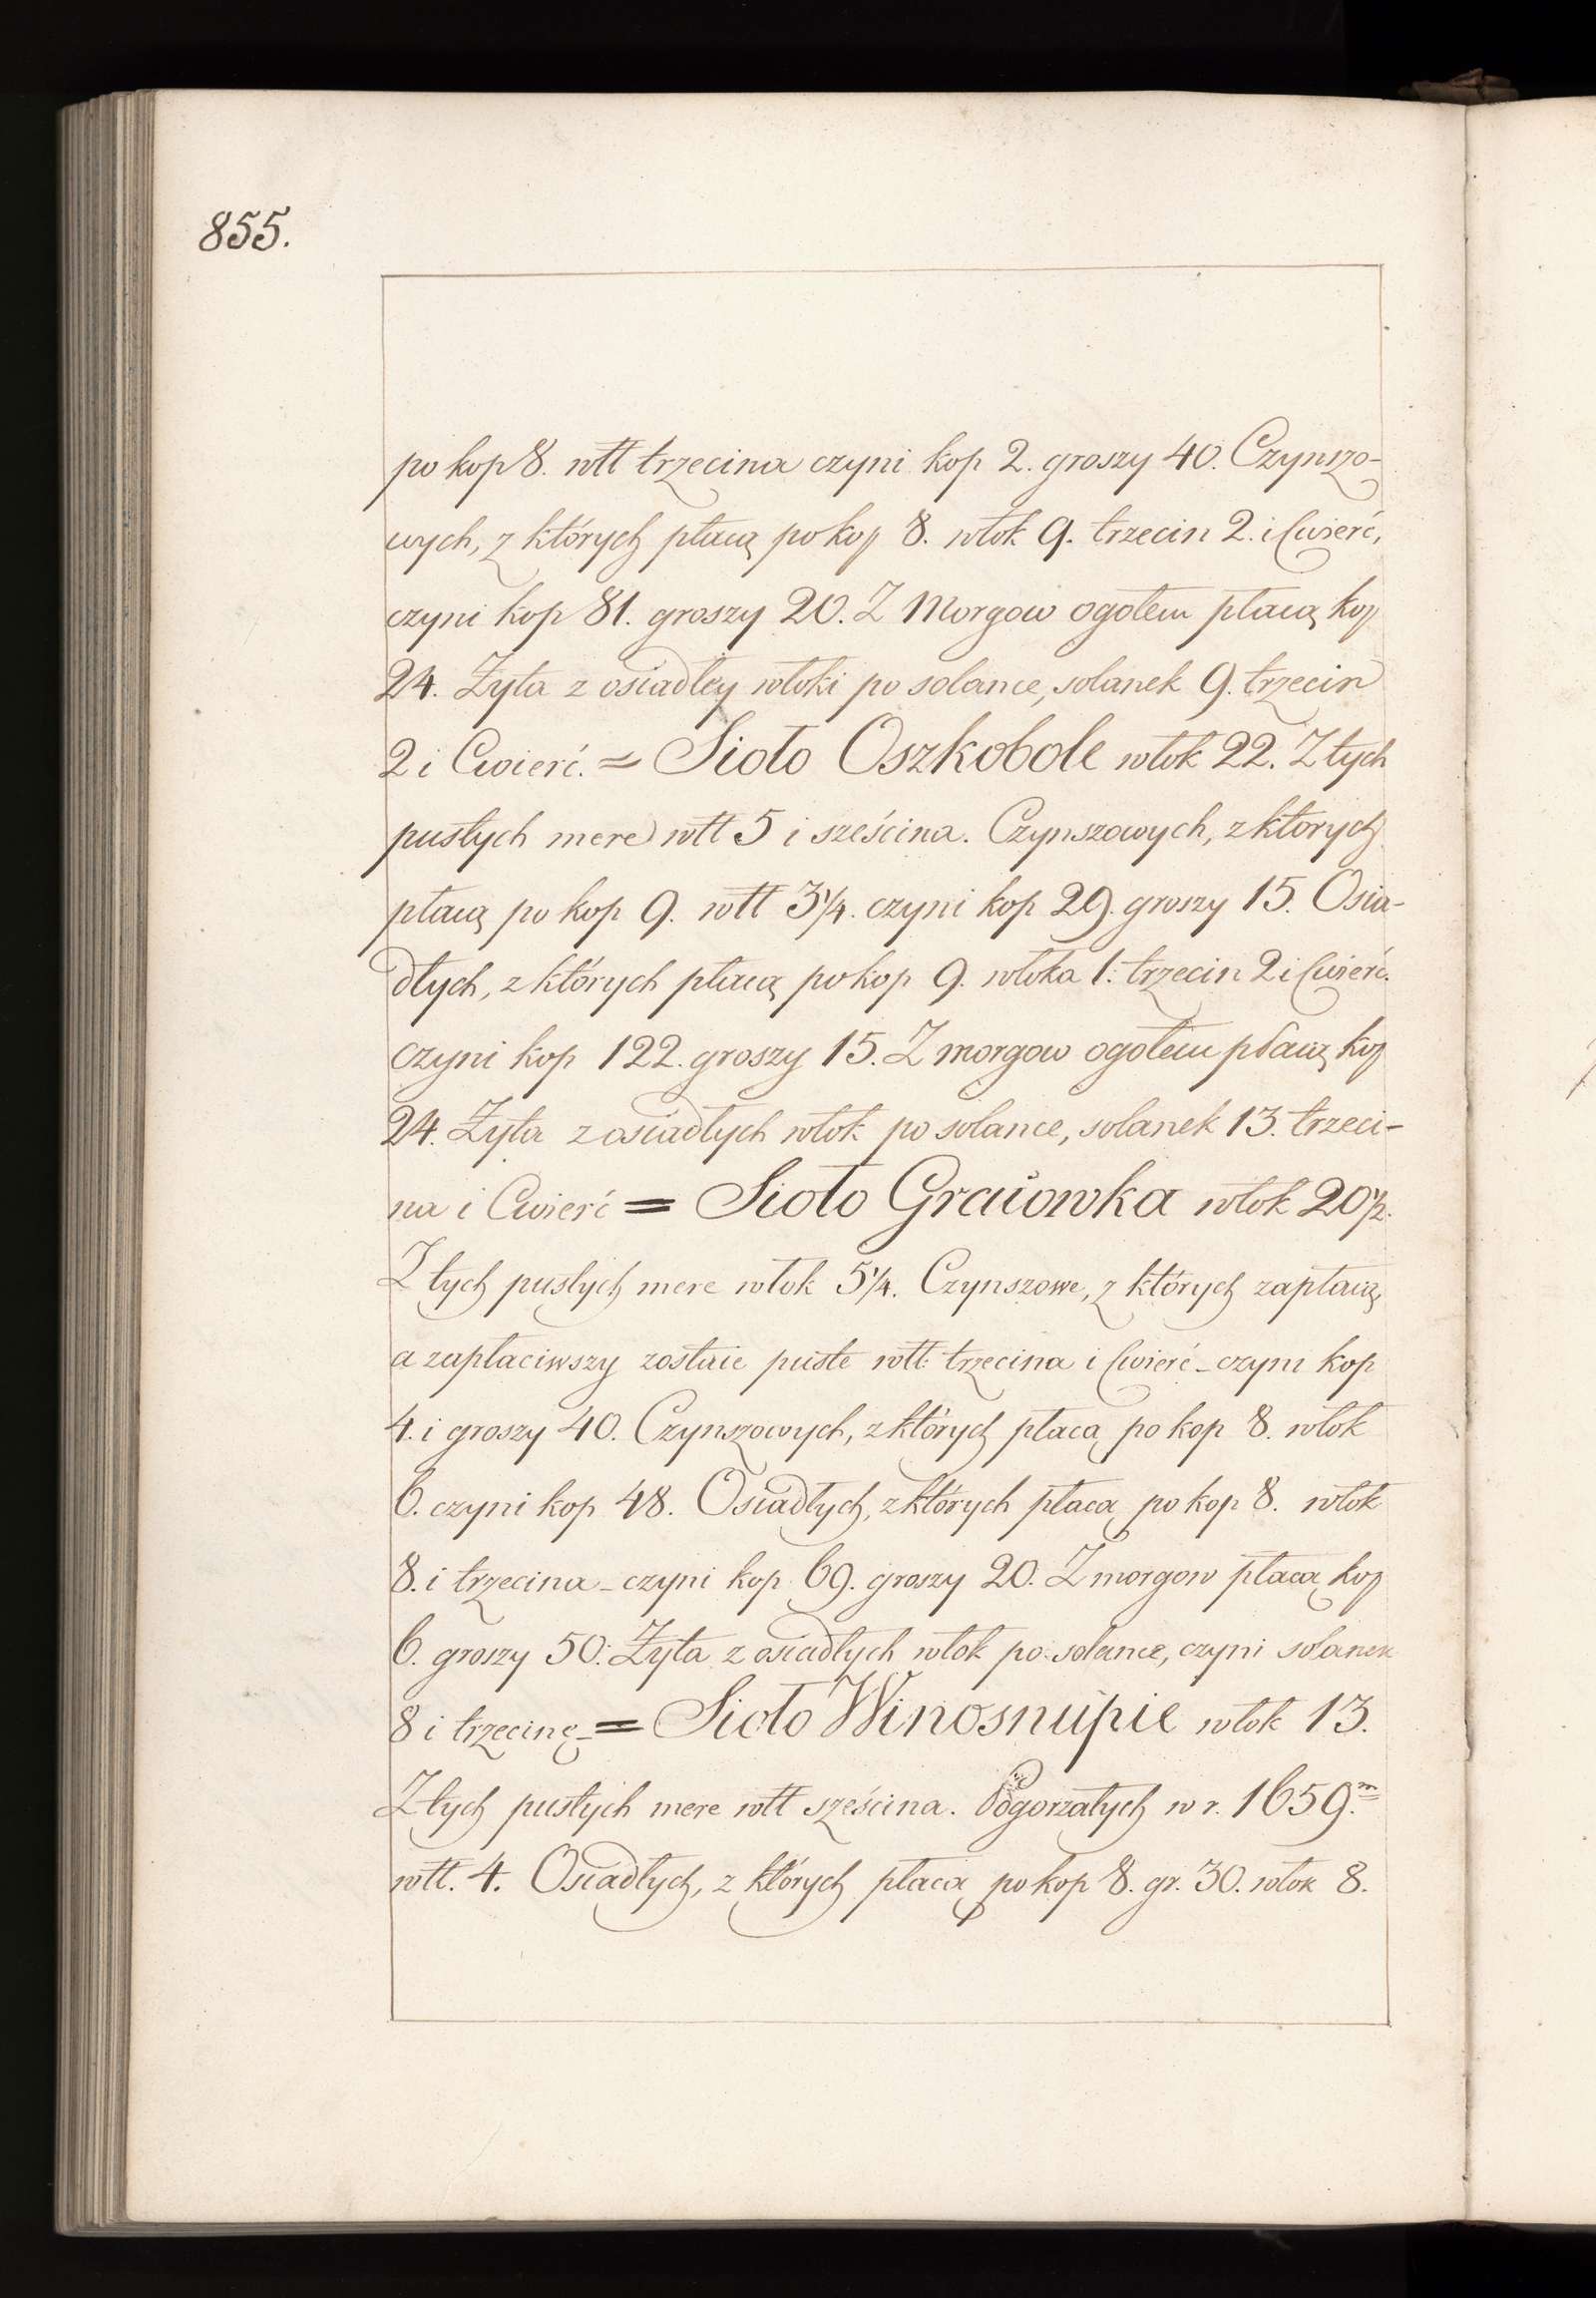 855.
po kop 8. włł trzecina czyni kop 2. groszy 40. Czynszo-
wych, z których płacą po kop 8. włok 9. trzecin 2. i Cwierć,
czyni kop 81. groszy 20. Z Morgow ogołem płacą kop
24. Żyta z osiadłey włoki po solance, solanek 9. trzecin
2 i Cwierć. = Sioło Oszkobole włok 22. Z tych
pustych mere włł 5 i sześcina. Czynszowych, z ktorych
płacą po kop 9. włł 3¼. czyni kop 29. groszy 15. Osia-
dłych, z których płacą po kop 9. włoka 1: trzecin 2 i Cwierć.
czyni kop 122. groszy 15. Z morgow ogołem płacą kop
24. Żyta z osiadłych włok po solance, solanek 13. trzeci-
na i Cwierć = Sioło Grauowka włok 20½.
Z tych pustych mere włok 5¼. Czynszowe, z których zapłacą,
a zapłaciwszy zostaie puste włł: trzecina i Cwierć - czyni kop
4. i groszy 40. Czynszowych, z których płacą po kop 8. włok
6. czyni kop 48. Osiadłych, z których płacą po kop 8. włok
8. i trzecina - czyni kop 69. groszy 20. Z morgow płacą kop
6. groszy 50. Żyta z osiadłych włok po solance, czyni solanek
8 i trzecinę - = Sioło Winosnupie włok 13.
Z tych pustych mere włł sześcina. Pogorzałych w r. 1659.m
włł. 4. Osiadłych, z których płacą po kop 8. gr. 30. włok 8.